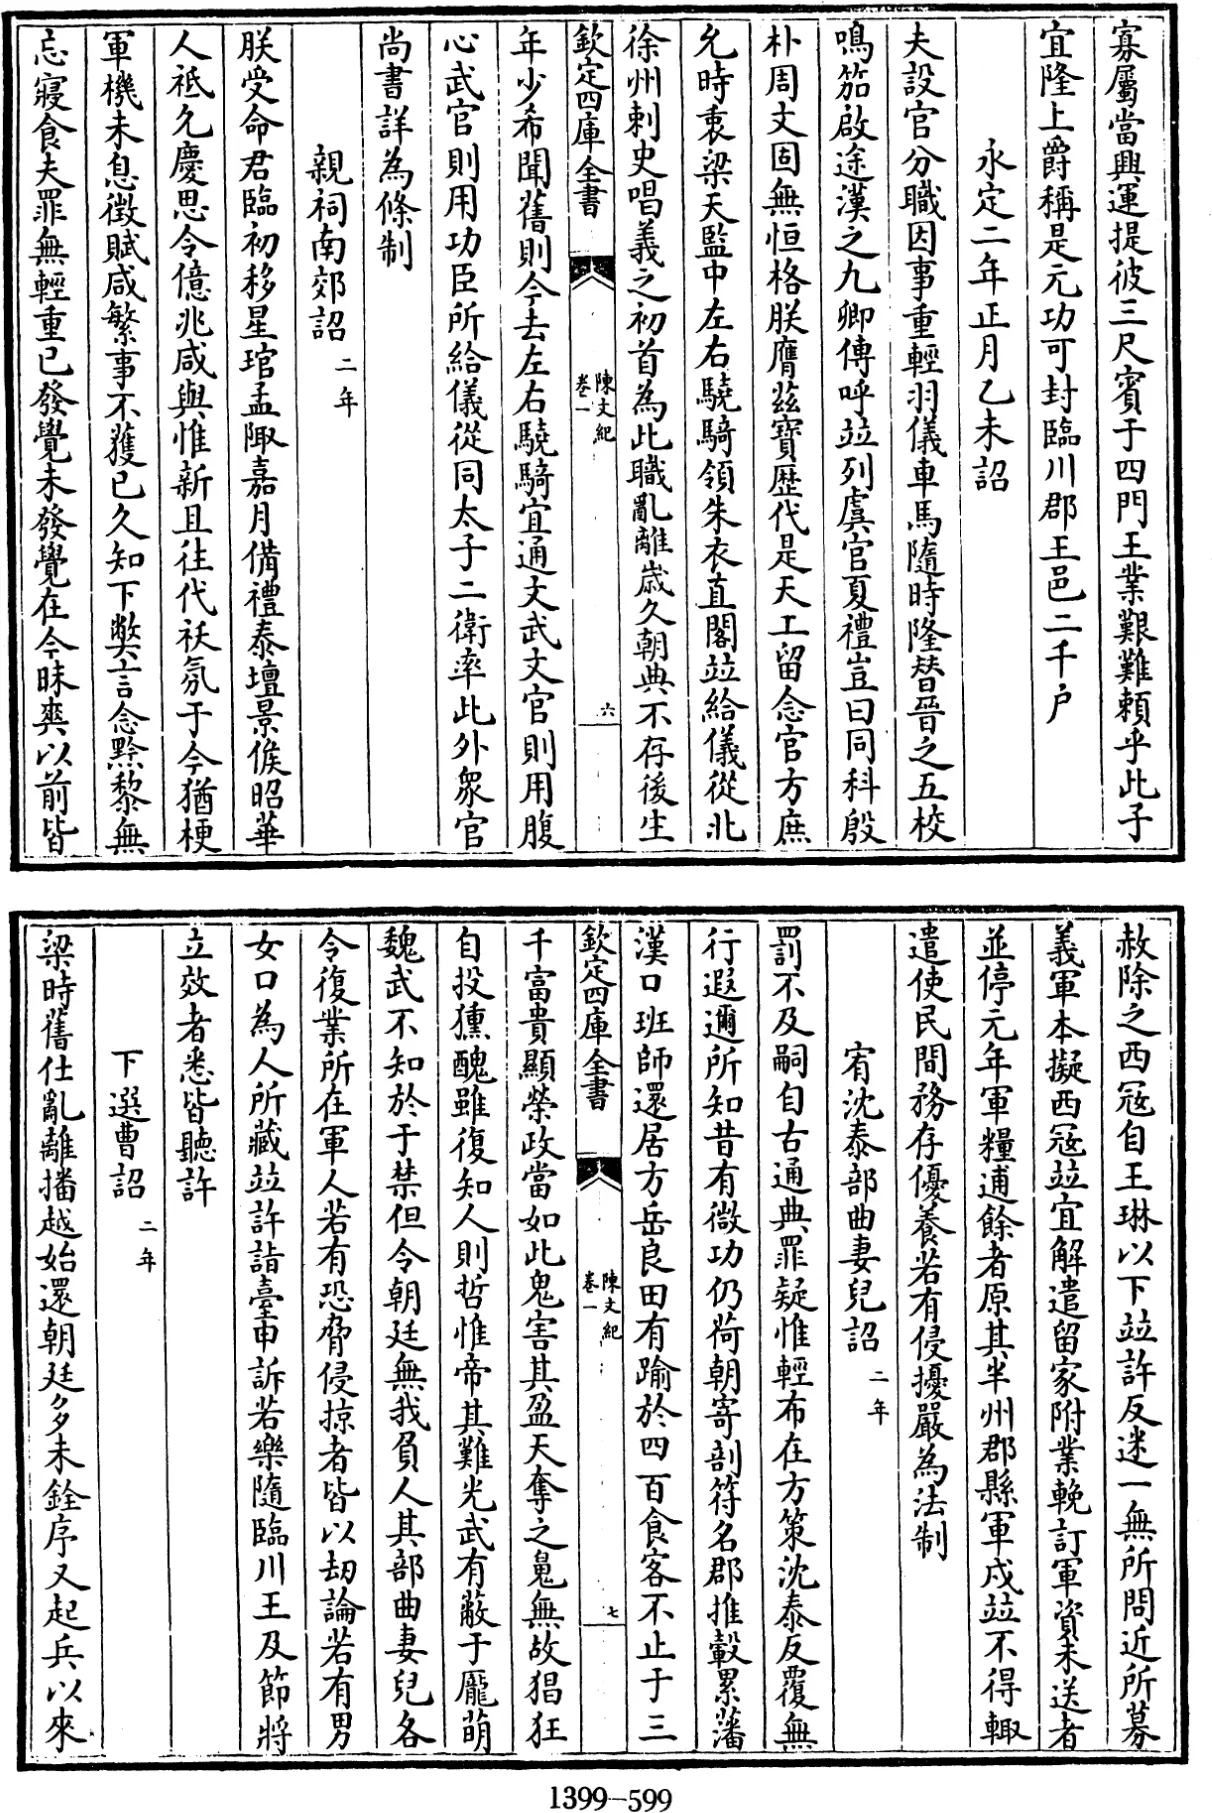 寡屬當興運提彼三尺賓于四門王業艱難賴乎此子
宜隆上爵稱是元功可封臨川郡王邑二千户
永定二年正月乙未詔
夫設官分職因事重輕羽儀車馬隨時隆替晉之五校
鳴笳啟途漢之九卿傳呼竝列虞官夏禮豈曰同科殷
朴周文固無恒格朕膺兹寶歴代是天工留念官方庶
允時衷梁天監中左右驍騎領朱衣直閣竝給儀從北
徐州刺史唱義之初首為此職亂離歲久朝典不存後生
欽定四庫全書
陳文紀
卷一
六
年少希聞舊則今去左右驍騎宜通文武文官則用腹
心武官則用功臣所給儀從同太子二衛率此外衆官
尚書詳為條制
親祠南郊詔 二年
朕受命君臨初移星琯孟陬嘉月備禮泰壇景侯昭華
人祗允慶思令億兆咸與惟新且往代祅氛于今猶梗
軍機未息徵賦咸繁事不獲已久知下弊言念黔黎無
忘寢食夫罪無輕重已發覺未發覺在今昧爽以前皆
赦除之西寇自王琳以下竝許反迷一無所問近所募
義軍本擬西寇竝宜解遣留家附業輓訂軍資未送者
並停元年軍糧逋餘者原其半州郡縣軍戍竝不得輙
遣使民間務存優養若有侵擾嚴為法制
宥沈泰部曲妻兒詔 二年
罰不及嗣自古通典罪疑惟輕布在方策沈泰反覆無
行遐邇所知昔有微功仍荷朝寄剖符名郡推轂累藩
漢口班師還居方岳良田有踰於四百食客不止于三
欽定四庫全書
陳文紀
卷一
七
千富貴顯榮政當如此鬼害其盈天奪之鬼無故猖狂
自投獯醜雖復知人則哲惟帝其難光武有蔽于龎萌
魏武不知於于禁但令朝廷無我負人其部曲妻兒各
令復業所在軍人若有恐脅侵掠者皆以劫論若有男
女口為人所藏竝許詣臺申訴若樂隨臨川王及節將
立效者悉皆聽許
下選曹詔 二年
梁時舊仕亂離播越始還朝廷多未銓序又起兵以來
1399-599